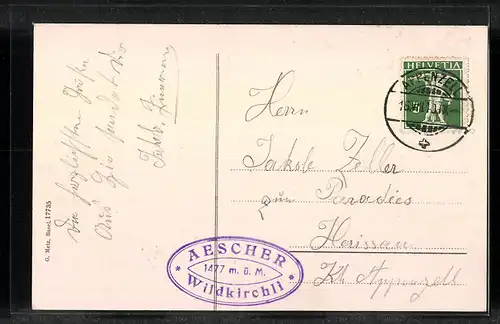 Die herzlichsten Grüße
Aus
sendet Dir
Jakob
G. Metz, Basel. 17735
HELVETIA
APPENZELL
Herrn
Jakob Zeller
zum Paradies
Herisau
Kt Appenzell
AESCHER
1477 m. ü. M.
Wildkirchli